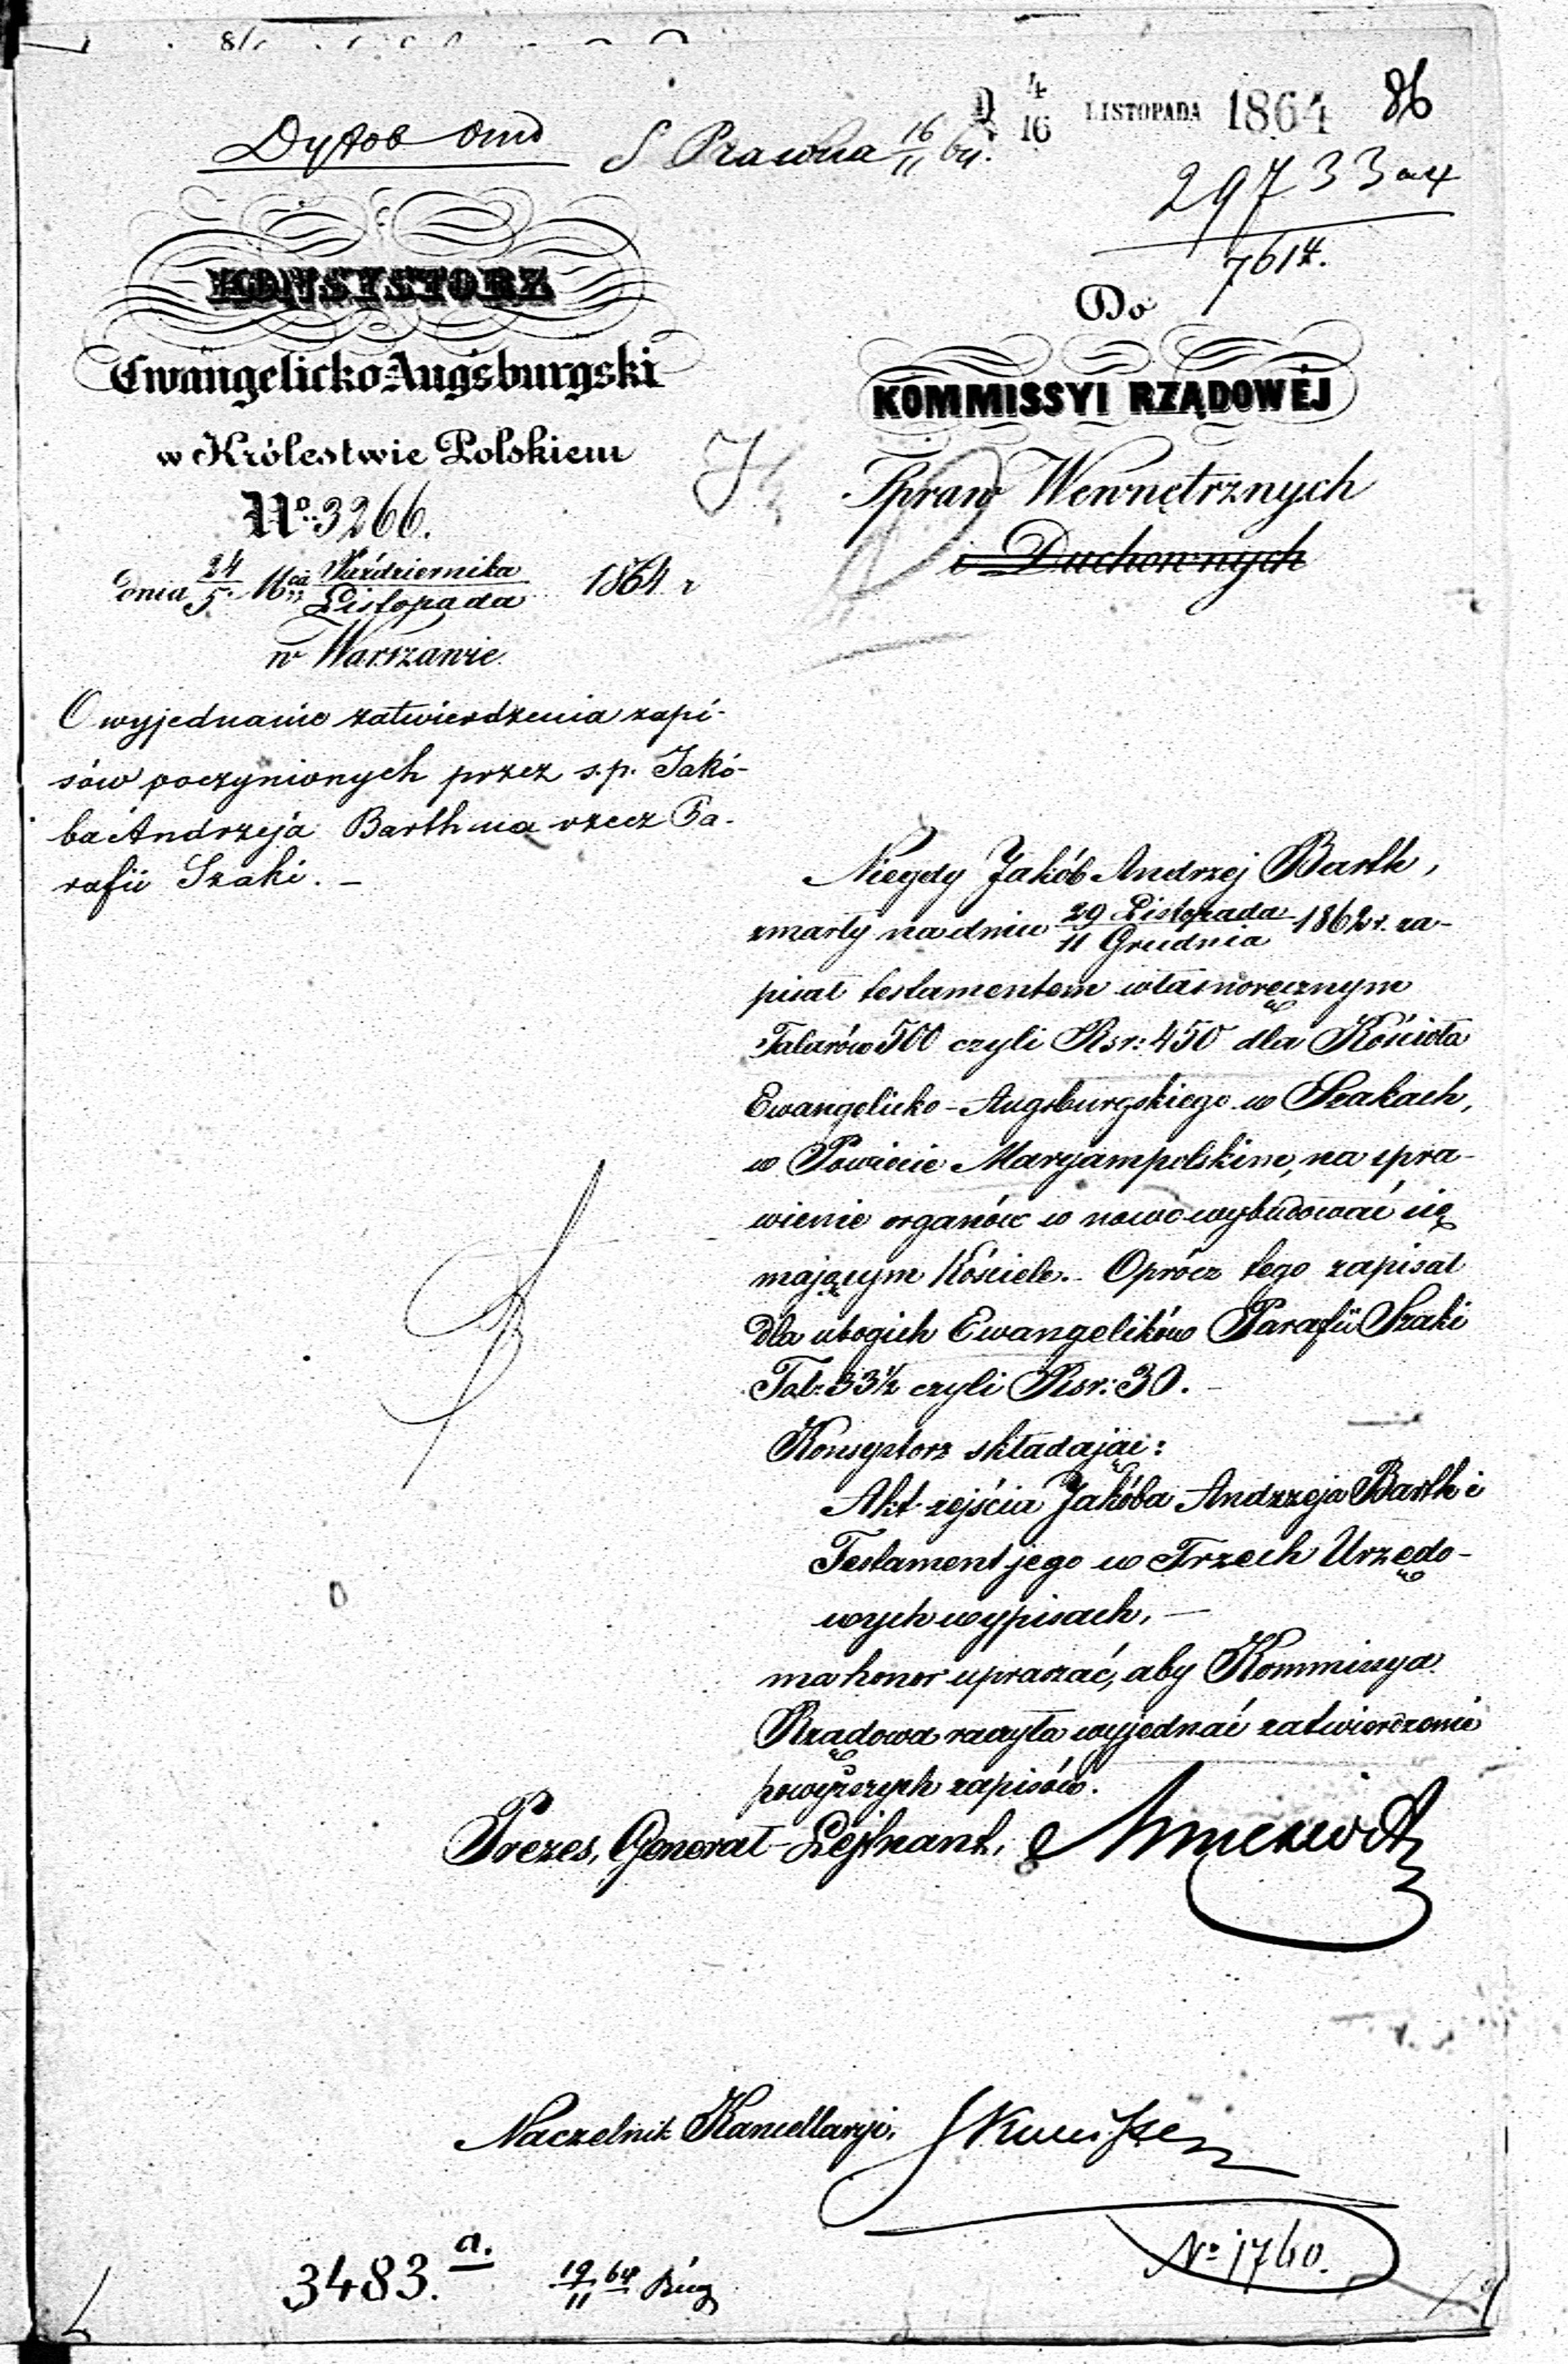 86
D 4/16 LISTOPADA 1864
S Prawna 16/11 64.
29733
7614.
KONSYSTORZ
Ewangelicko-Augsburgski
w Królestwie Polskiem
No. 3266.
dnia 24/5 Mca Października/Listopada 1864 r
w Warszawie.
O wyjednanie zatwierdzenia zapi-
sów poczynionych przez s.p. Jakó-
ba Andrzeja Barth na rzecz Pa-
rafii Szaki. –
Do
KOMMISSYI RZĄDOWÉJ
Spraw Wewnętrznych
i Duchownych
Niegdy Jakób Andrzej Barth,
zmarły na dniu 29 Listopada/11 Grudnia 1862 r. za-
pisał testamentem własnoręcznym
Talarów 500 czyli Rsr: 450 dla Kościoła
Ewangelicko-Augsburgskiego w Szakach,
w Powiecie Maryampolskim, na spra-
wienie organów w nowo wybudować się
mającym Kościele. Oprócz tego zapisał
dla ubogich Ewangelików Parafii Szaki
Tal: 33½ czyli Rsr: 30. –
Konsystorz składając:
Akt zejścia Jakóba Andrzeja Barth i
Testament jego w Trzech Urzędo-
wych wypisach, –
ma honor upraszać, aby Kommissya
Rządowa raczyła wyjednać zatwierdzenie
powyższych zapisów.
Prezes, Generał-Lejtnant,
Naczelnik Kancellaryi,
No 1760.
3483. a.
19/11 64